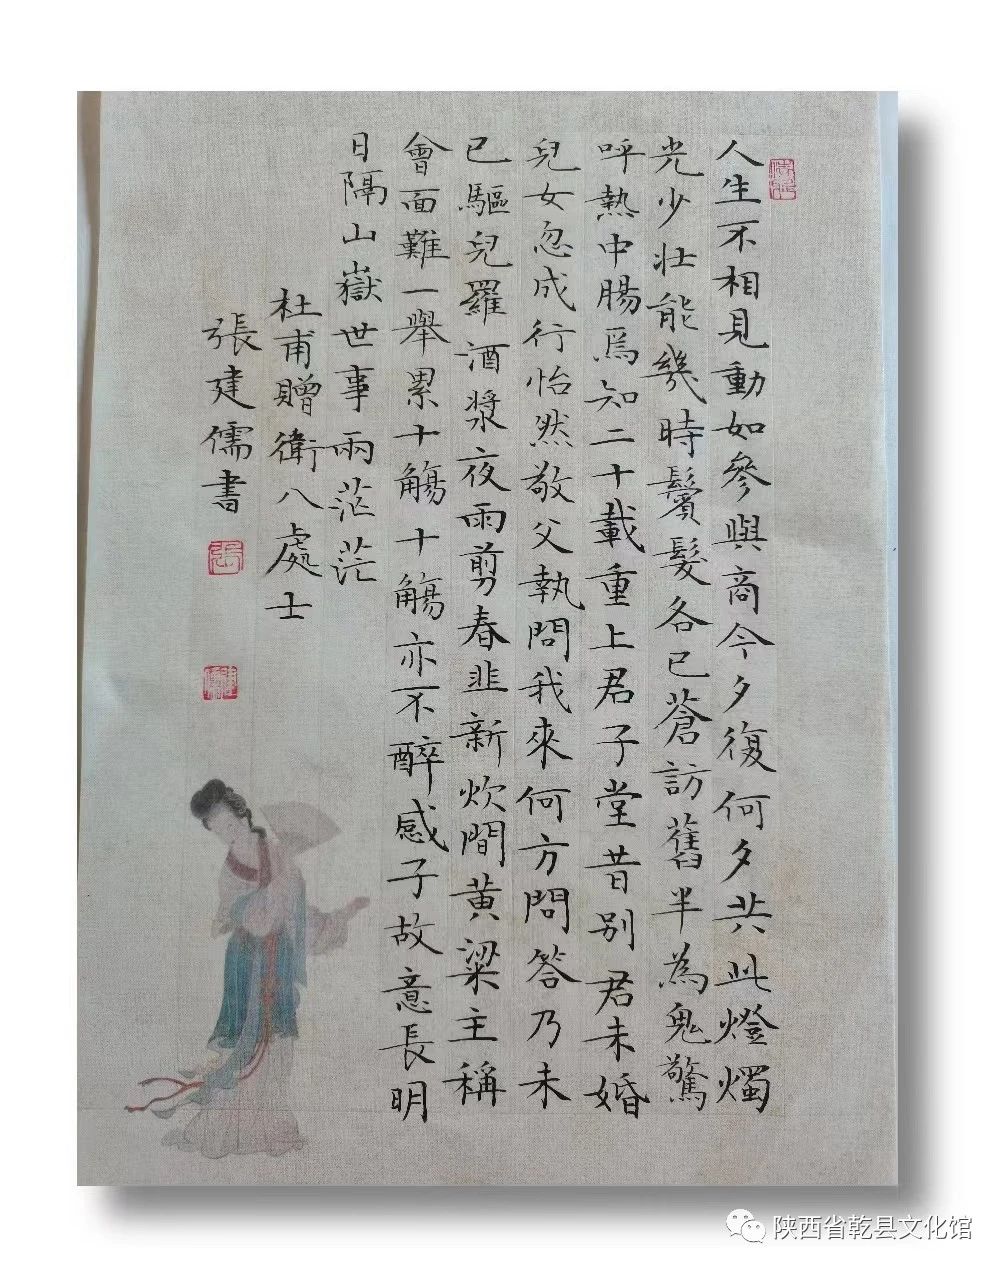 人生不相見動如參與商今夕復何夕共此燈燭
光少壯能幾時鬢髮各已蒼訪舊半為鬼驚
呼熱中腸焉知二十載重上君子堂昔別君未婚
兒女忽成行怡然敬父執問我來何方問答乃未
已驅兒羅酒漿夜雨剪春韭新炊間黃粱主稱
會面難一舉累十觴十觴亦不醉感子故意長明
日隔山嶽世事兩茫茫
杜甫贈衛八處士
張建儒書
陕西省乾县文化馆